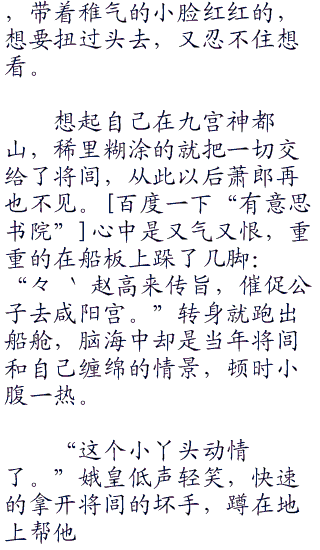 ，带着稚气的小脸红红的，
想要扭过头去，又忍不住想
看。
想起自己在九宫神都
山，稀里糊涂的就把一切交
给了将闾，从此以后萧郎再
也不见。[百度一下“有意思
书院”]心中是又气又恨，重
重的在船板上跺了几脚：
“々 丶 赵高来传旨，催促公
子去咸阳宫。”转身就跑出
船舱，脑海中却是当年将闾
和自己缠绵的情景，顿时小
腹一热。
“这个小丫头动情
了。”娥皇低声轻笑，快速
的拿开将闾的坏手，蹲在地
上帮他